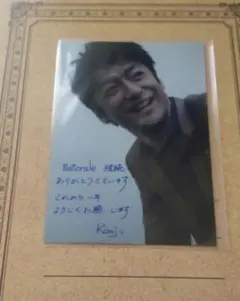 Nationale 継続
ありがとうございます
これからも
よろしくお願いします
Kanji